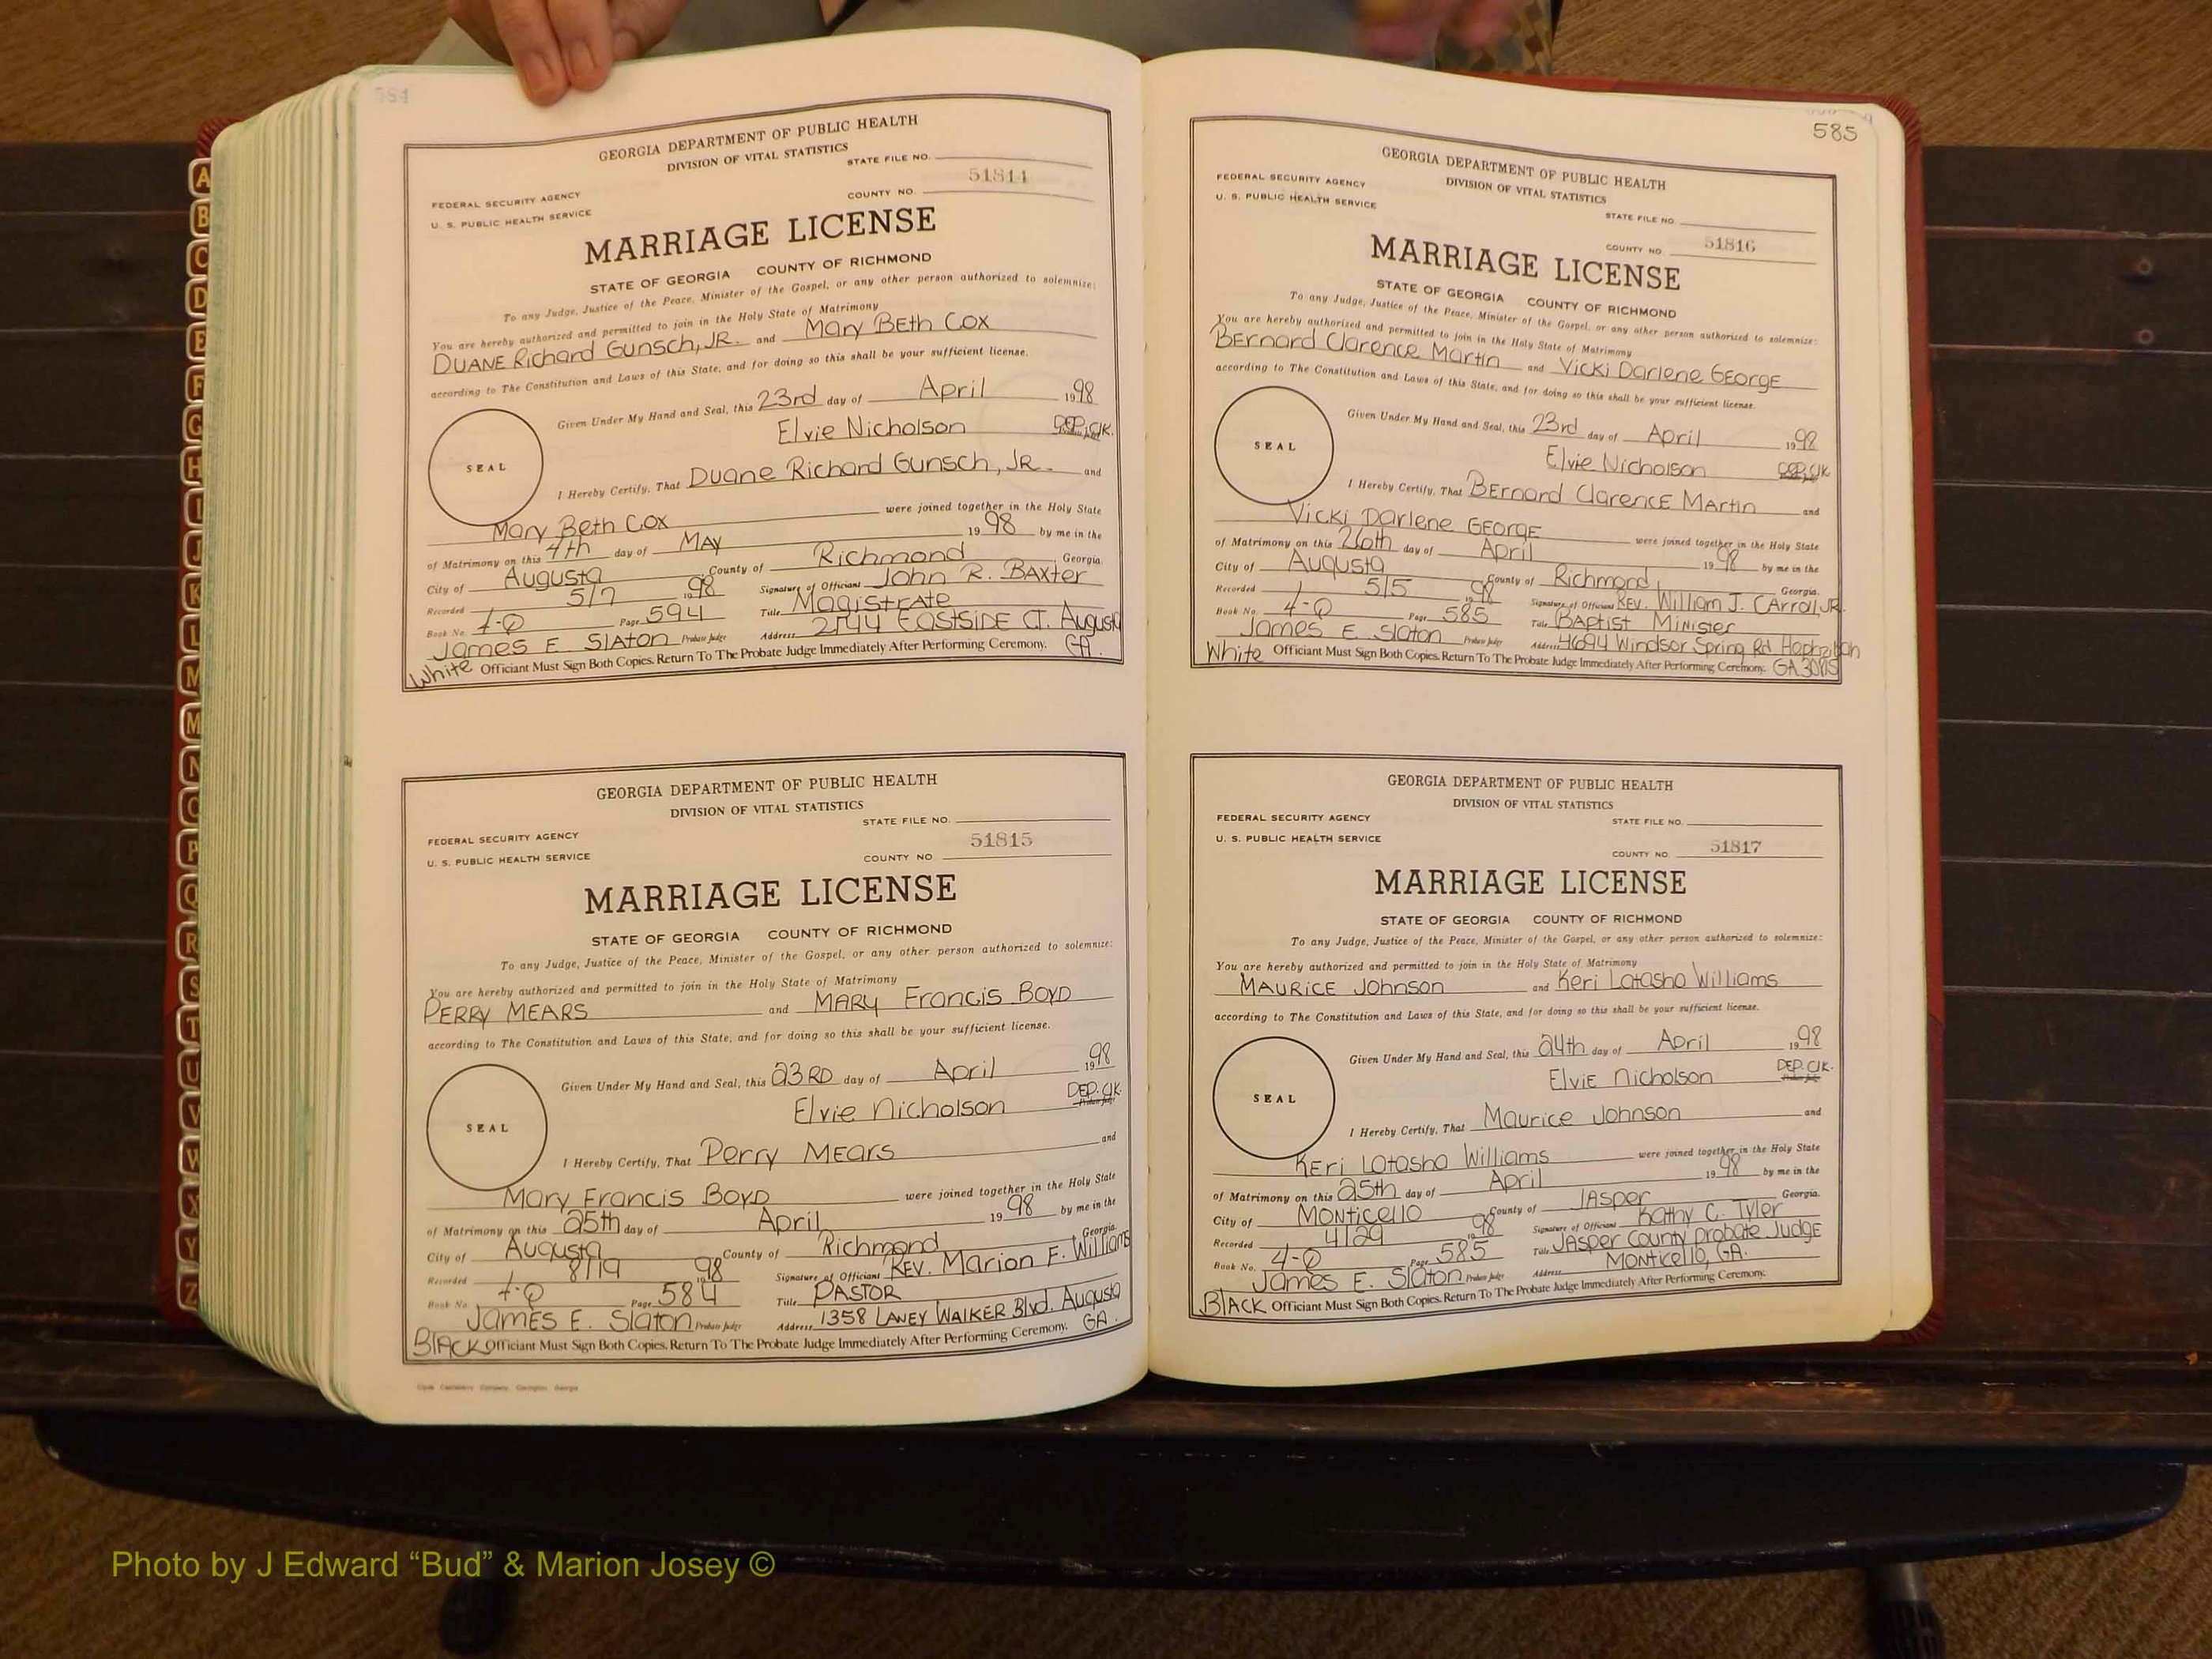 584
GEORGIA DEPARTMENT OF PUBLIC HEALTH
DIVISION OF VITAL STATISTICS
STATE FILE NO.
FEDERAL SECURITY AGENCY
51814
U. S. PUBLIC HEALTH SERVICE
COUNTY NO.
MARRIAGE LICENSE
STATE OF GEORGIA COUNTY OF RICHMOND
To any Judge, Justice of the Peace, Minister of the Gospel, or any other person authorized to solemnize:
You are hereby authorized and permitted to join in the Holy State of Matrimony
DUANE Richard Gunsch, JR. and Mary BEth Cox
according to The Constitution and Laws of this State, and for doing so this shall be your sufficient license.
Given Under My Hand and Seal, this 23rd day of April 1998
Elvie Nicholson DEP. ClK.
SEAL
I Hereby Certify, That Duane Richard Gunsch, JR. and
Mary Beth Cox were joined together in the Holy State
of Matrimony on this 4th day of MAY 1998 by me in the
City of Augusta County of Richmond Georgia.
Recorded 5/7 1998 Signature of Officiant John R. BAxter
Book No. 4-Q Page 594 Title Magistrate
James E Slaton Probate Judge Address 2744 EastsiDE CT. Augusta GA.
White Officiant Must Sign Both Copies. Return To The Probate Judge Immediately After Performing Ceremony.
GEORGIA DEPARTMENT OF PUBLIC HEALTH
DIVISION OF VITAL STATISTICS
STATE FILE NO.
FEDERAL SECURITY AGENCY
51815
U. S. PUBLIC HEALTH SERVICE
COUNTY NO.
MARRIAGE LICENSE
STATE OF GEORGIA COUNTY OF RICHMOND
To any Judge, Justice of the Peace, Minister of the Gospel, or any other person authorized to solemnize:
You are hereby authorized and permitted to join in the Holy State of Matrimony
PERRY MEARS and MARY Francis BoyD
according to The Constitution and Laws of this State, and for doing so this shall be your sufficient license.
Given Under My Hand and Seal, this 23RD day of April 1998
Elvie nicholson DEP. ClK.
SEAL
I Hereby Certify, That Perry MEars and
Mary Francis BoyD were joined together in the Holy State
of Matrimony on this 25th day of April 1998 by me in the
City of Augusta County of Richmond Georgia.
Recorded 8/19 1998 Signature of Officiant REV. Marion F. Williams
Book No. 4-Q Page 584 Title PASTOR
JamES E. Slaton Probate Judge Address 1358 LANEY WALKER Blvd. Augusta GA.
BlACK Officiant Must Sign Both Copies. Return To The Probate Judge Immediately After Performing Ceremony.
585
GEORGIA DEPARTMENT OF PUBLIC HEALTH
DIVISION OF VITAL STATISTICS
FEDERAL SECURITY AGENCY
U. S. PUBLIC HEALTH SERVICE
STATE FILE NO.
COUNTY NO. 51816
MARRIAGE LICENSE
STATE OF GEORGIA COUNTY OF RICHMOND
To any Judge, Justice of the Peace, Minister of the Gospel, or any other person authorized to solemnize:
You are hereby authorized and permitted to join in the Holy State of Matrimony
BErnard Clarence Martin and Vicki Darlene GEorgE
according to The Constitution and Laws of this State, and for doing so this shall be your sufficient license.
Given Under My Hand and Seal, this 23rd day of April 1998
Elvie Nicholson DEP. ClK
SEAL
I Hereby Certify, That BErnard ClarencE MArtin and
Vicki Darlene GEORgE were joined together in the Holy State
of Matrimony on this 26th day of April 1998 by me in the
City of Augusta County of Richmond Georgia.
Recorded 5/5 1998 Signature of Officiant REV. William J. CArroll, JR.
Book No. 4-Q Page 585 Title BAptist Minister
James E. Slaton Probate Judge Address 4694 Windsor Spring Rd Hephzibah GA 30815
White Officiant Must Sign Both Copies. Return To The Probate Judge Immediately After Performing Ceremony.
GEORGIA DEPARTMENT OF PUBLIC HEALTH
DIVISION OF VITAL STATISTICS
FEDERAL SECURITY AGENCY
STATE FILE NO.
U. S. PUBLIC HEALTH SERVICE
COUNTY NO. 51817
MARRIAGE LICENSE
STATE OF GEORGIA COUNTY OF RICHMOND
To any Judge, Justice of the Peace, Minister of the Gospel, or any other person authorized to solemnize:
You are hereby authorized and permitted to join in the Holy State of Matrimony
MAURICE Johnson and Keri Latasha Williams
according to The Constitution and Laws of this State, and for doing so this shall be your sufficient license.
Given Under My Hand and Seal, this 24th day of April 1998
ElviE nicholson DEP. ClK.
SEAL
I Hereby Certify, That Maurice Johnson and
KEri Latasha Williams were joined together in the Holy State
of Matrimony on this 25th day of April 1998 by me in the
City of MONticello County of JASper Georgia.
Recorded 4/29 1998 Signature of Officiant Kathy C. Tyler
Book No. 4-Q Page 585 Title JAsper County probate Judge
James E. Slaton Probate Judge Address MONticello, GA.
BlACK Officiant Must Sign Both Copies. Return To The Probate Judge Immediately After Performing Ceremony.
A
B
C
D
E
F
G
H
I
J
K
L
M
M
N
O
P
Q
R
S
T
U
V
W
X
Y
Z
Photo by J Edward “Bud” & Marion Josey ©